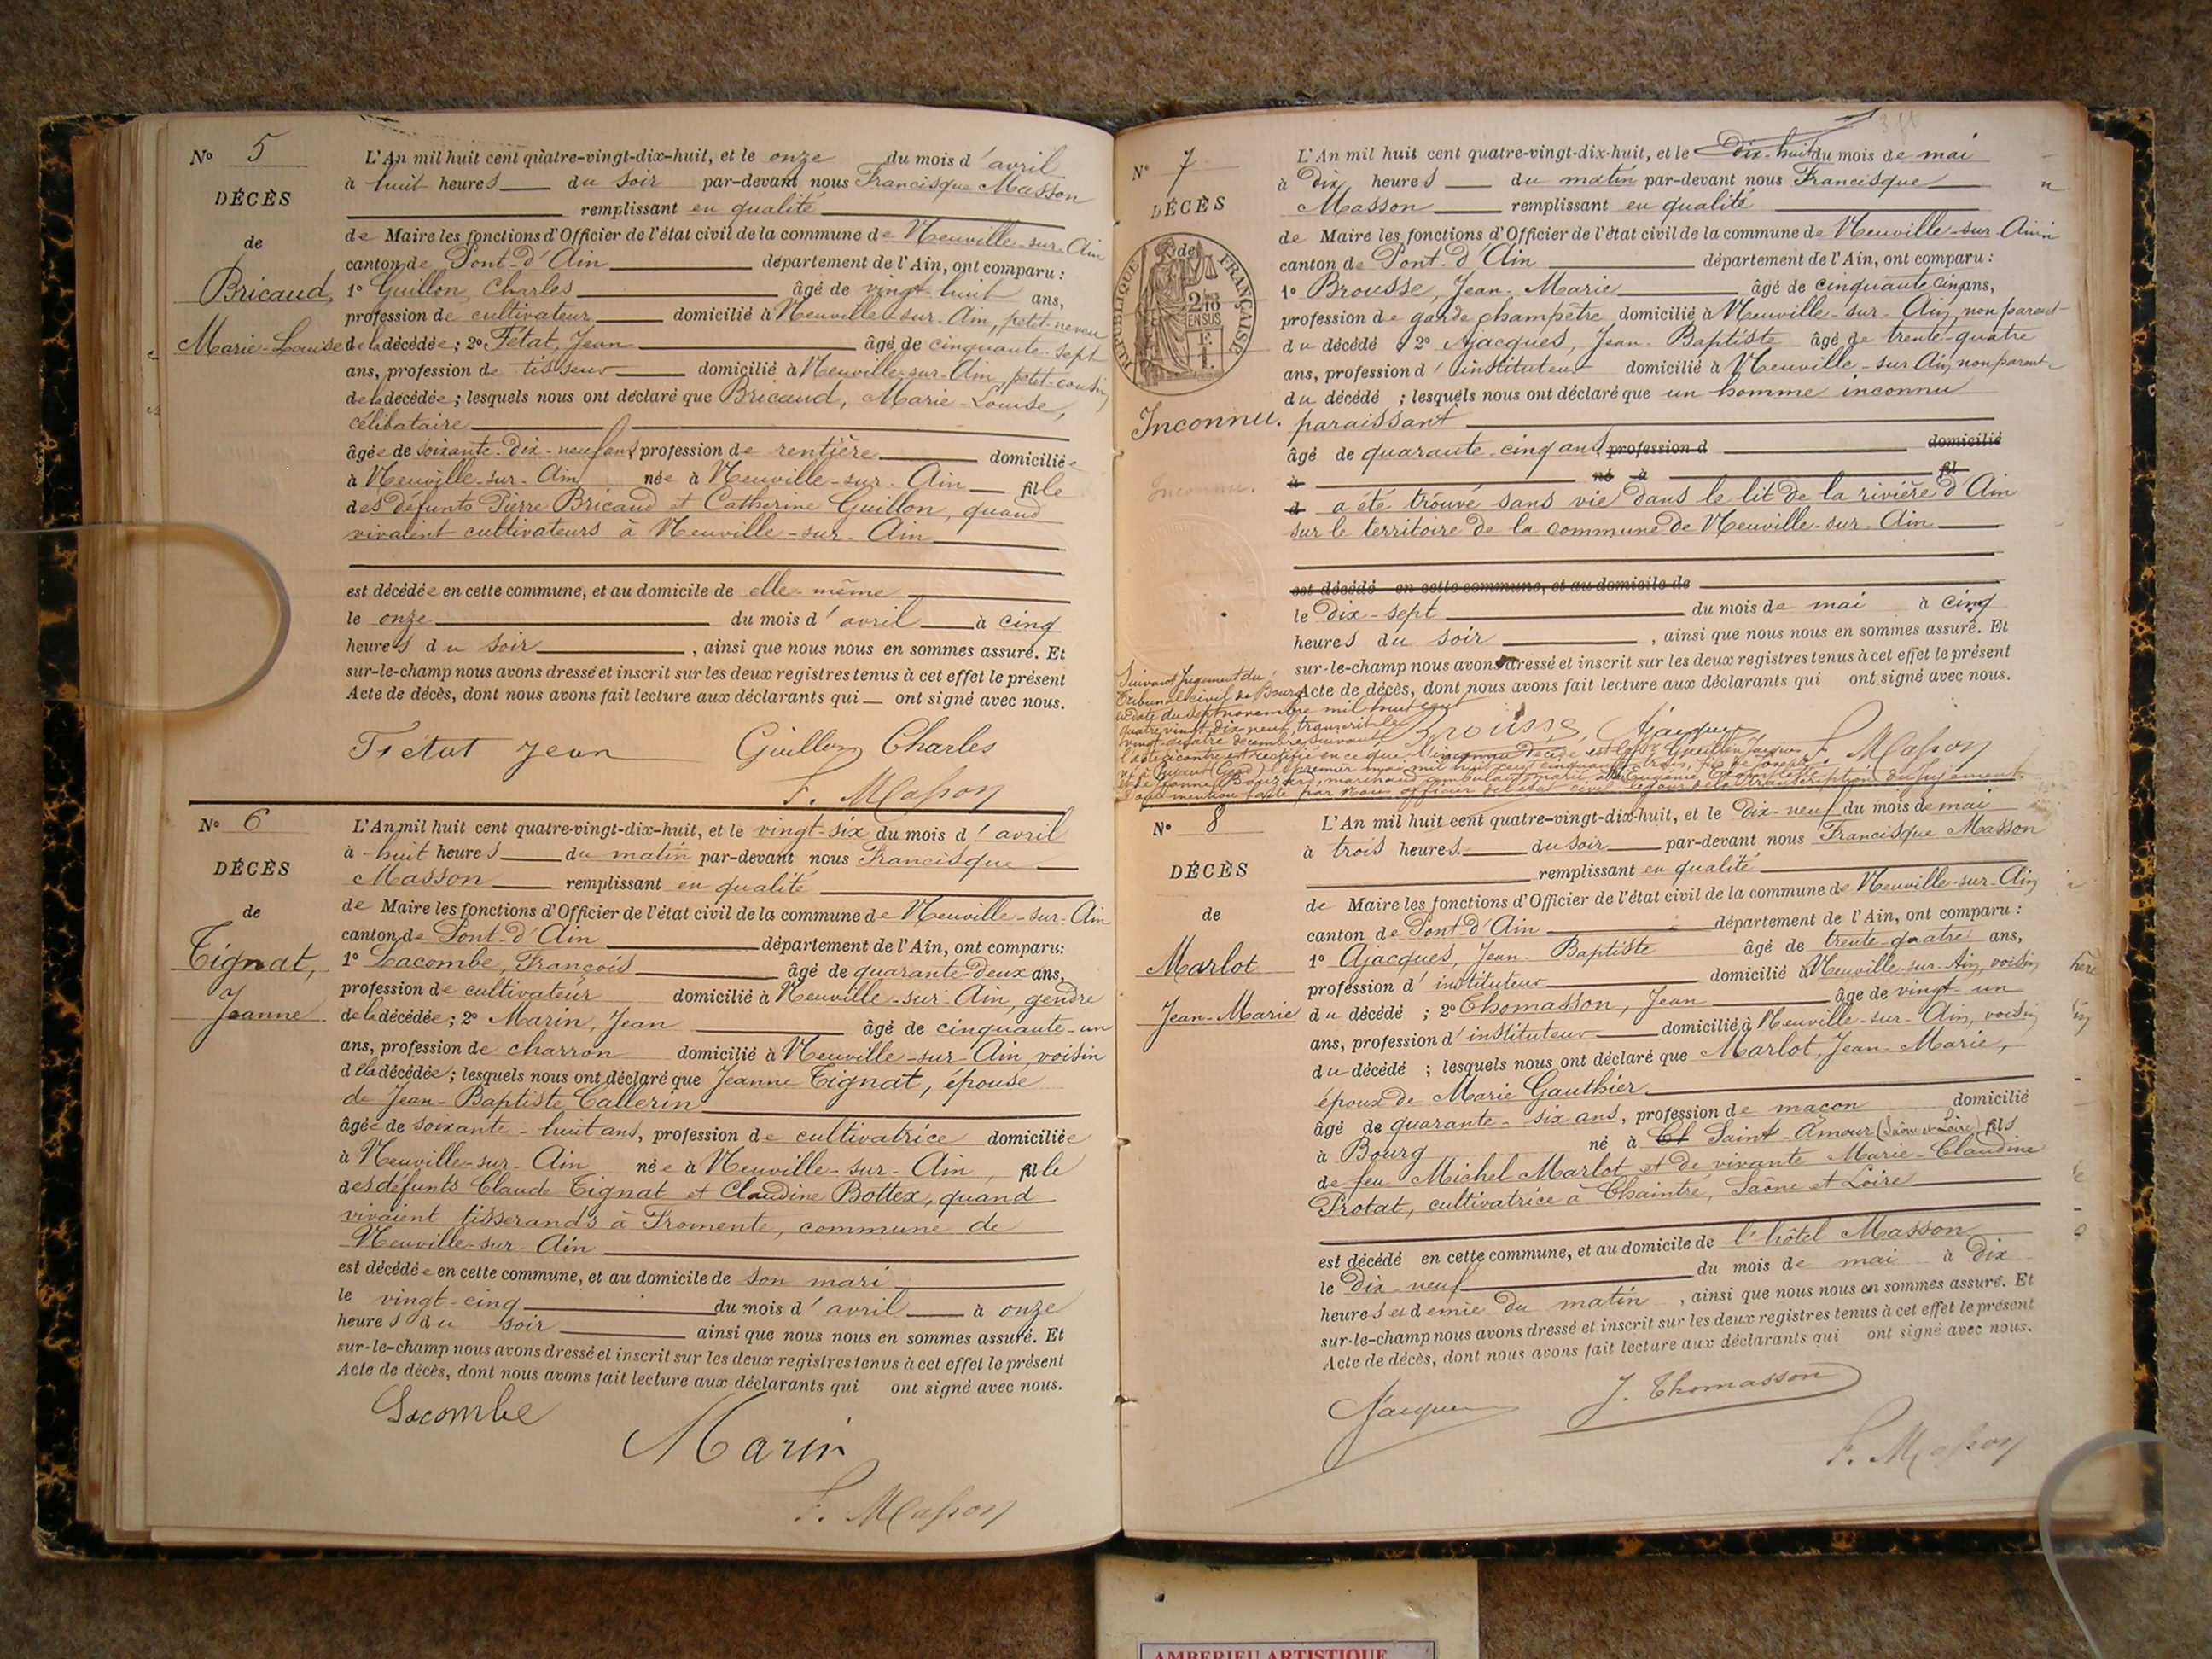 N° 5
DÉCÈS
de
Bricaud,
Marie-Louise
L'An mil huit cent quatre-vingt-dix-huit, et le onze du mois d'avril
à huit heures du soir par-devant nous Francisque Masson
remplissant en qualité
de Maire les fonctions d'Officier de l'état civil de la commune de Neuville-sur-Ain
canton de Pont-d'Ain département de l'Ain, ont comparu :
1° Guillon, Charles âgé de vingt-huit ans,
profession de cultivateur domicilié à Neuville-sur-Ain, petit-neveu
de la décédée ; 2° Fétat, Jean âgé de cinquante-sept
ans, profession de tisseur domicilié à Neuville-sur-Ain, petit-cousin
de la décédée ; lesquels nous ont déclaré que Bricaud, Marie-Louise,
célibataire
âgée de soixante-dix-neuf ans, profession de rentière domiciliée
à Neuville-sur-Ain née à Neuville-sur-Ain fille
des défunts Pierre Bricaud et Catherine Guillon, quand
vivaient cultivateurs à Neuville-sur-Ain
est décédée en cette commune, et au domicile de elle-même
le onze du mois d'avril à cinq
heures du soir, ainsi que nous nous en sommes assuré. Et
sur-le-champ nous avons dressé et inscrit sur les deux registres tenus à cet effet le présent
Acte de décès, dont nous avons fait lecture aux déclarants qui ont signé avec nous.
Fétat Jean Guillon Charles
F. Masson
N° 6
DÉCÈS
de
Tignat,
Jeanne
L'An mil huit cent quatre-vingt-dix-huit, et le vingt-six du mois d'avril
à huit heures du matin par-devant nous Francisque
Masson remplissant en qualité
de Maire les fonctions d'Officier de l'état civil de la commune de Neuville-sur-Ain
canton de Pont-d'Ain département de l'Ain, ont comparu:
1° Lacombe, François âgé de quarante-deux ans,
profession de cultivateur domicilié à Neuville-sur-Ain, gendre
de la décédée; 2° Marin, Jean âgé de cinquante-un
ans, profession de charron domicilié à Neuville-sur-Ain, voisin
de la décédée; lesquels nous ont déclaré que Jeanne Tignat, épouse
de Jean-Baptiste Callerin
âgée de soixante-huit ans, profession de cultivatrice domiciliée
à Neuville-sur-Ain née à Neuville-sur-Ain, fille
des défunts Claude Tignat et Claudine Bottex, quand
vivaient tisserands à Fromente, commune de
Neuville-sur-Ain
est décédée en cette commune, et au domicile de son mari
le vingt-cinq du mois d'avril à onze
heures du soir ainsi que nous nous en sommes assuré. Et
sur-le-champ nous avons dressé et inscrit sur les deux registres tenus à cet effet le présent
Acte de décès, dont nous avons fait lecture aux déclarants qui ont signé avec nous.
Lacombe
Marin
F. Masson
N° 7
DÉCÈS
de
RÉPUBLIQUE FRANÇAISE
2/10 EN SUS
Inconnu.
Inconnu.
L'An mil huit cent quatre-vingt-dix-huit, et le dix-huit du mois de mai
à dix heures du matin par-devant nous Francisque
Masson remplissant en qualité
de Maire les fonctions d'Officier de l'état civil de la commune de Neuville-sur-Ain
canton de Pont-d'Ain département de l'Ain, ont comparu :
1° Brousse, Jean-Marie âgé de cinquante cinq ans,
profession de garde champêtre domicilié à Neuville-sur-Ain, non parent
du décédé ; 2° Ajacques, Jean-Baptiste âgé de trente-quatre
ans, profession d'instituteur domicilié à Neuville-sur-Ain, non parent
du décédé ; lesquels nous ont déclaré que un homme inconnu
paraissant
âgé de quarante-cinq ans, profession d domicilié
à né à fil
d a été trouvé sans vie dans le lit de la rivière d'Ain
sur le territoire de la commune de Neuville-sur-Ain
est décédé en cette commune, et au domicile de
le dix-sept du mois de mai à cinq
heures du soir, ainsi que nous nous en sommes assuré. Et
sur-le-champ nous avons dressé et inscrit sur les deux registres tenus à cet effet le présent
Acte de décès, dont nous avons fait lecture aux déclarants qui ont signé avec nous.
Brousse, Ajacques F. Masson
Suivant jugement du
Tribunal civil de Bourg
en date du sept novembre mil huit cent
quatre vingt dix neuf, transcrit le
vingt-quatre décembre suivant
l'acte ci contre est rectifié en ce que l'inconnu décédé est
né à le premier mai mil huit cent cinquante trois, fils de Joseph
marchand ambulant, marié à Eugénie
Dont mention faite par nous officier de l'état civil le jour de la transcription du jugement.
N° 8
DÉCÈS
de
Marlot
Jean-Marie
L'An mil huit cent quatre-vingt-dix-huit, et le dix-neuf du mois de mai
à trois heures du soir par-devant nous Francisque Masson
remplissant en qualité
de Maire les fonctions d'Officier de l'état civil de la commune de Neuville-sur-Ain
canton de Pont-d'Ain département de l'Ain, ont comparu :
1° Ajacques, Jean-Baptiste âgé de trente-quatre ans,
profession d'instituteur domicilié à Neuville-sur-Ain, voisin
du décédé ; 2° Thomasson, Jean âgé de vingt-un
ans, profession d'instituteur domicilié à Neuville-sur-Ain, voisin
du décédé ; lesquels nous ont déclaré que Marlot, Jean-Marie,
époux de Marie Gauthier
âgé de quarante-six ans, profession de maçon domicilié
à Bourg né à Ch Saint-Amour (Saône et Loire) fils
de feu Michel Marlot et de vivante Marie-Claudine
Protat, cultivatrice à Chaintré, Saône et Loire
est décédé en cette commune, et au domicile de l'hôtel Masson
le dix neuf du mois de mai à dix
heures et demie du matin, ainsi que nous nous en sommes assuré. Et
sur-le-champ nous avons dressé et inscrit sur les deux registres tenus à cet effet le présent
Acte de décès, dont nous avons fait lecture aux déclarants qui ont signé avec nous.
Ajacques J. Thomasson
F. Masson
AMBERIEU ARTISTIQUE